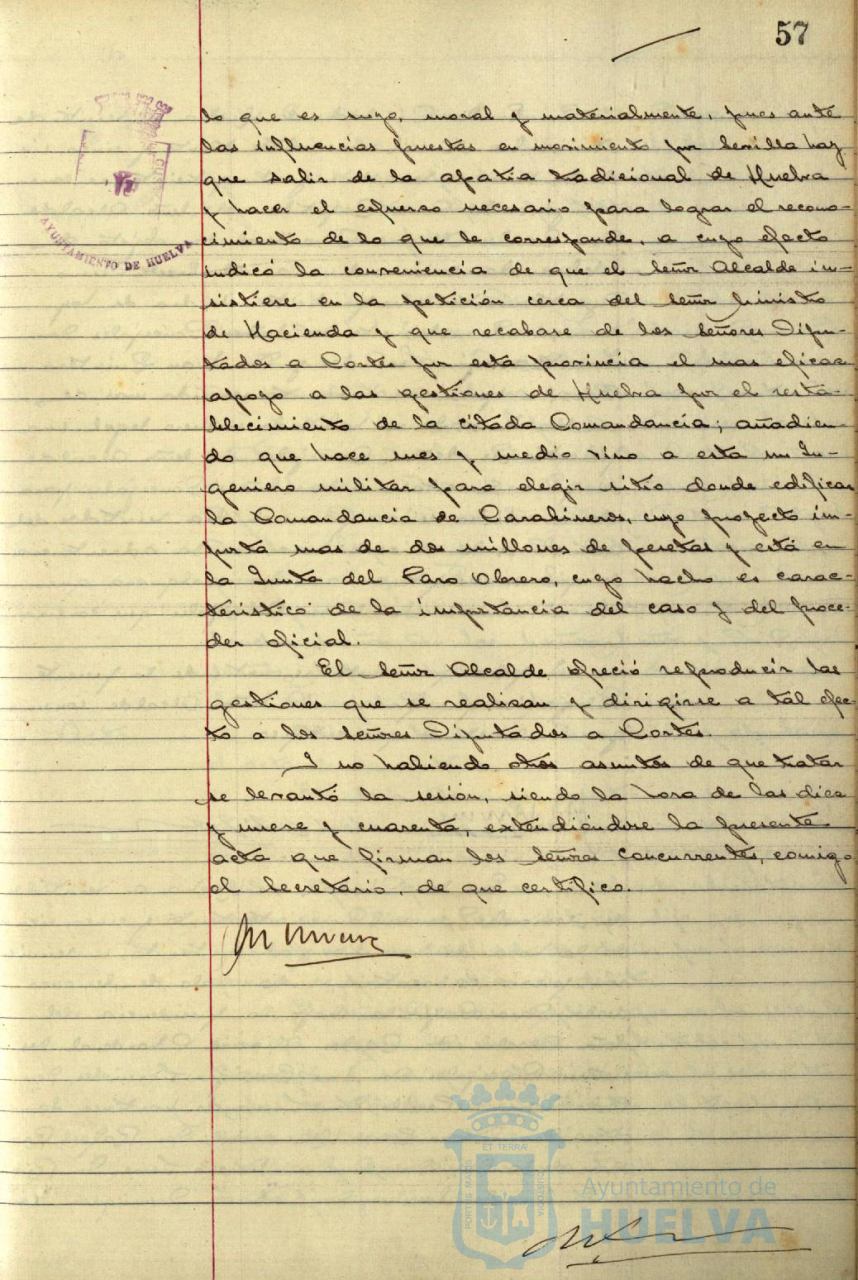 57
lo que es suyo, moral y materialmente, pues ante
las influencias puestas en movimiento por Sevilla hay
que salir de la apatía tradicional de Huelva
y hacer el esfuerzo necesario para lograr el recono-
cimiento de lo que le corresponde, a cuyo efecto
indicó la conveniencia de que el Señor Alcalde in-
sistiese en la petición cerca del Señor Ministro
de Hacienda y que recabase de los Señores Dipu-
tados a Cortes por esta provincia el mas eficaz
apoyo a las gestiones de Huelva por el resta-
blecimiento de la citada Comandancia; añadien-
do que hace mes y medio vino a esta un In-
geniero militar para elegir sitio donde edificar
la Comandancia de Carabineros, cuyo proyecto im-
porta mas de dos millones de pesetas y está en
la Junta del Paro Obrero, cuyo hecho es carac-
terístico de la importancia del caso y del proce-
der oficial.
El Señor Alcalde ofreció reproducir las
gestiones que se realizan y dirigirse a tal efec-
to a los Señores Diputados a Cortes.
Y no habiendo otros asuntos de que tratar
se levantó la sesión, siendo la hora de las diez
y nueve y cuarenta, extendiéndose la presente
acta que firman los Señores concurrentes, comigo
el Secretario, de que certifico.
AYUNTAMIENTO DE HUELVA
PORTUS MARIS
ET TERRA
CUSTODIA
Ayuntamiento de
HUELVA